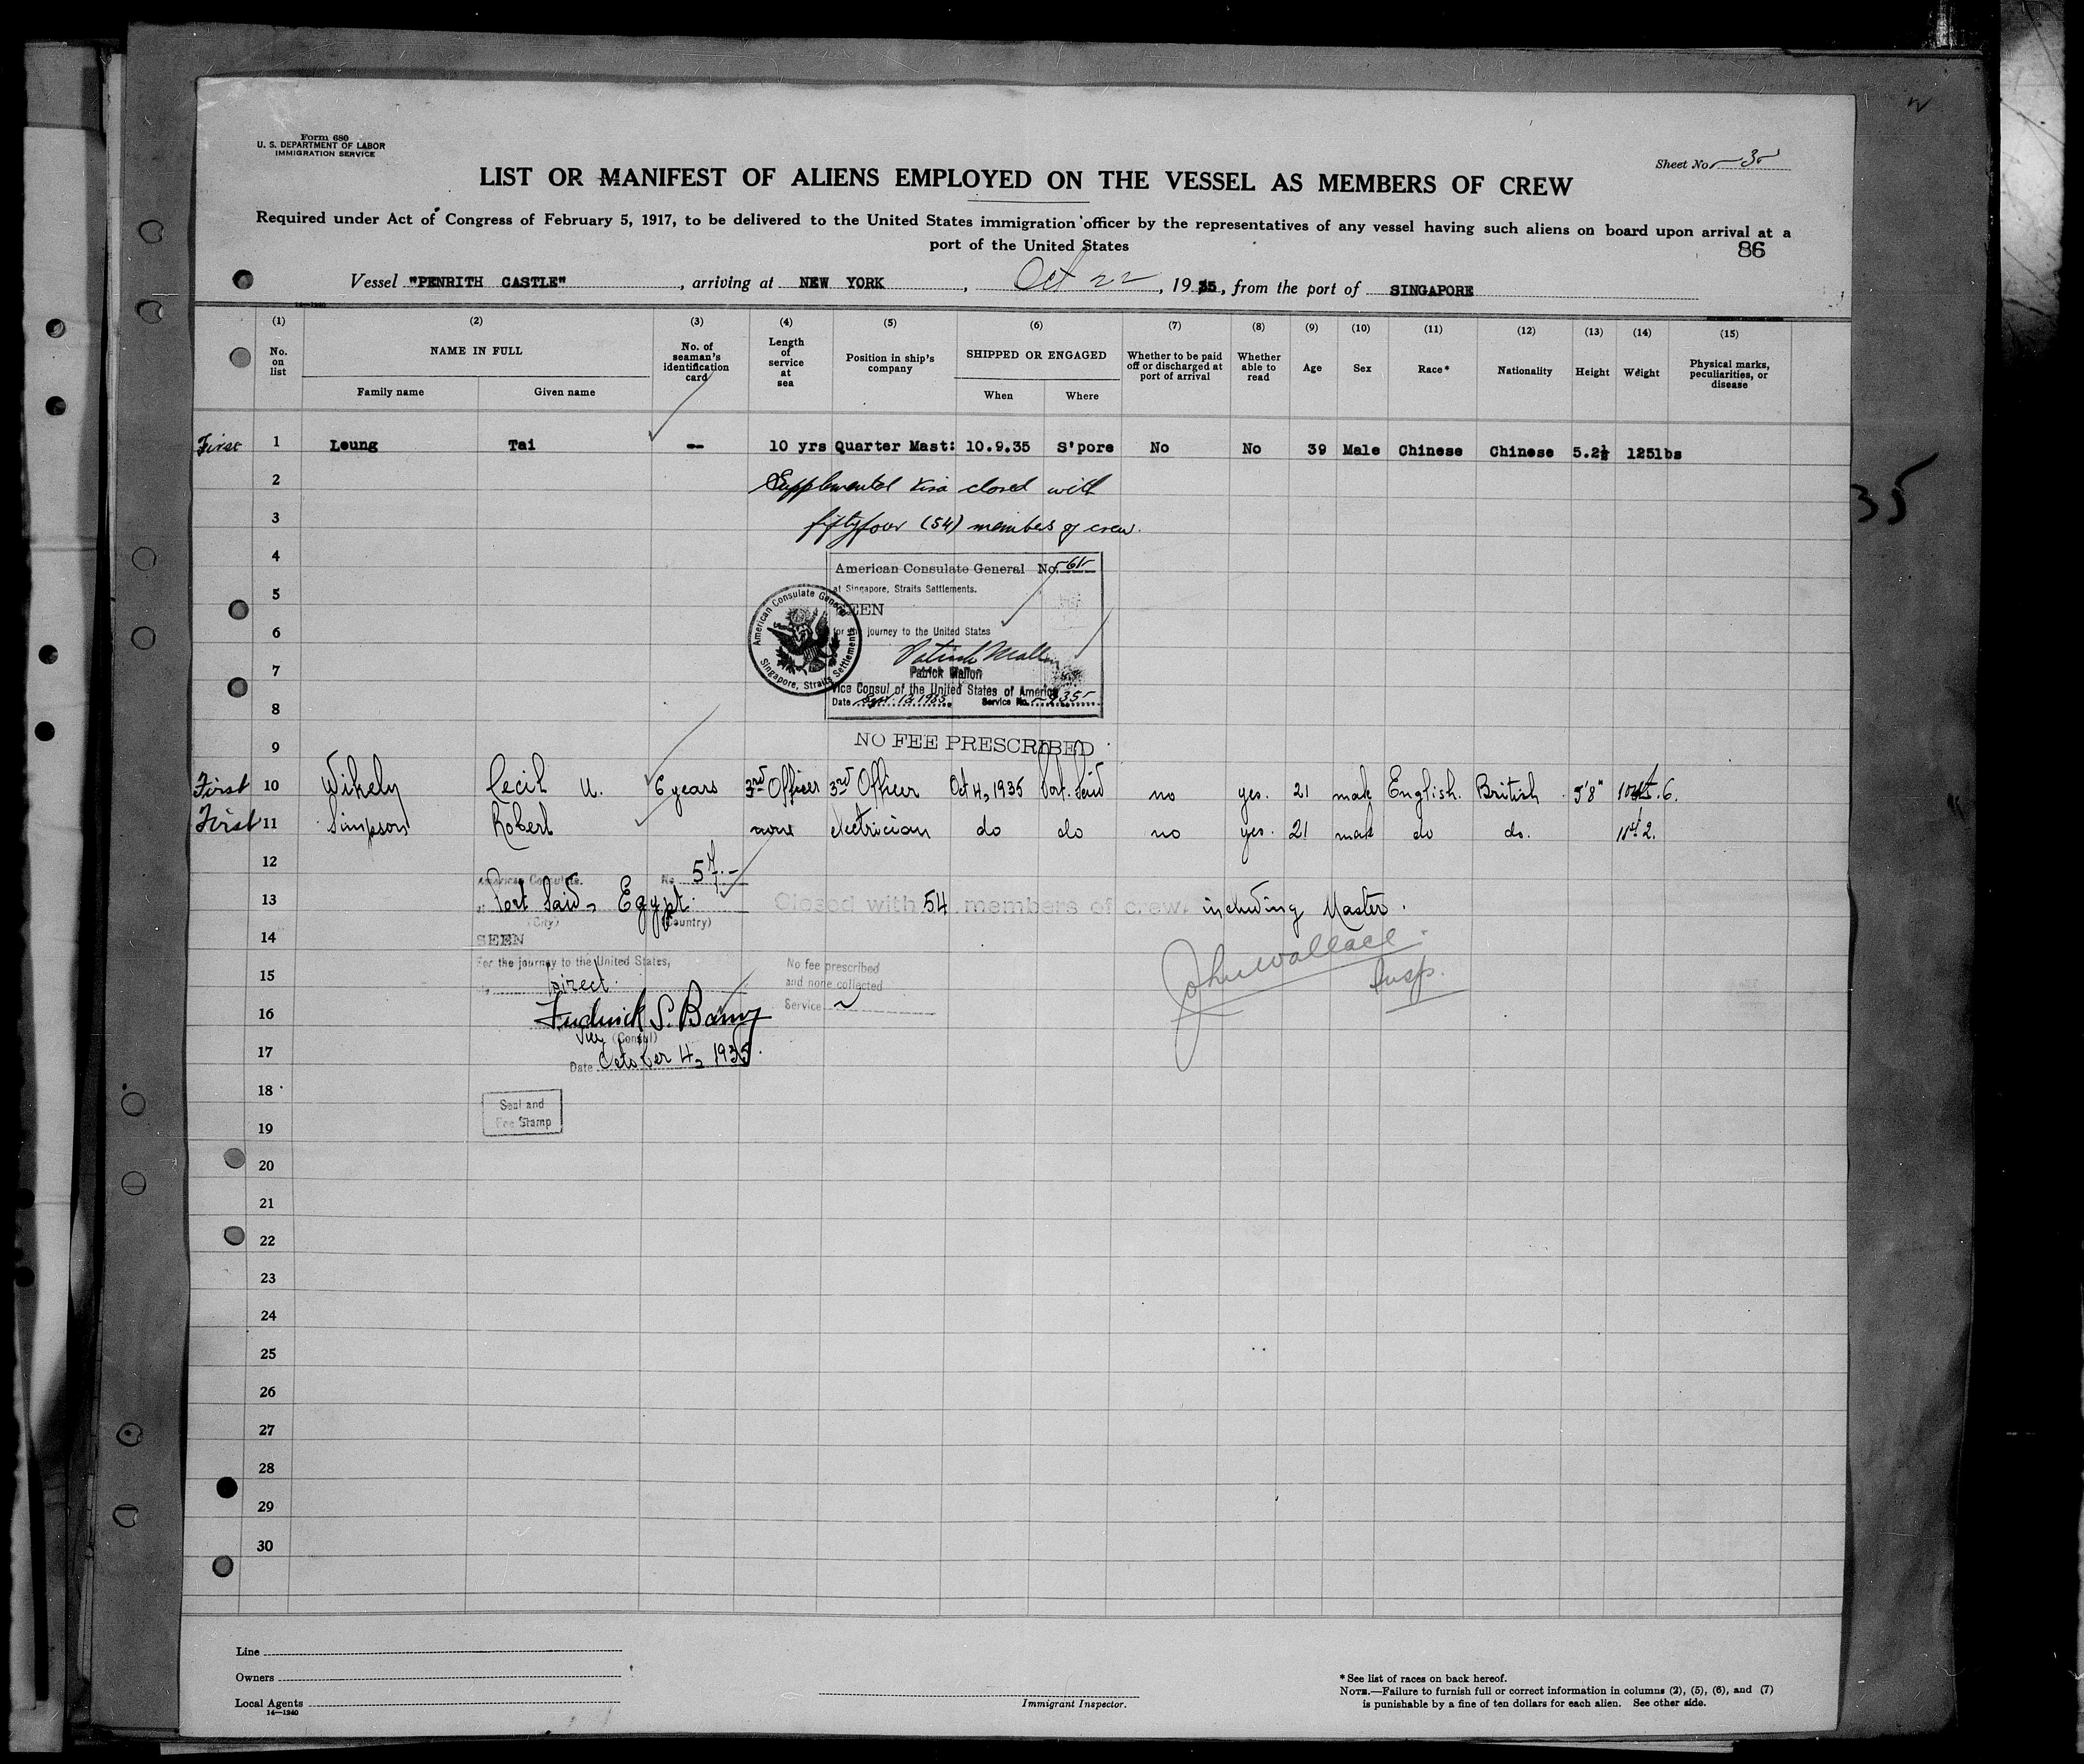 Form 680
U. S. DEPARTMENT OF LABOR
IMMIGRATION SERVICE
Sheet No. 3
LIST OR MANIFEST OF ALIENS EMPLOYED ON THE VESSEL AS MEMBERS OF CREW
Required under Act of Congress of February 5, 1917, to be delivered to the United States immigration officer by the representatives of any vessel having such aliens on board upon arrival at a
port of the United States
86
Vessel "PENRITH CASTLE", arriving at NEW YORK, Oct 22, 1935, from the port of SINGAPORE
14-1240
(1) (2) (3) (4) (5) (6) (7) (8) (9) (10) (11) (12) (13) (14) (15)
No. on list NAME IN FULL No. of seaman's identification card Length of service at sea Position in ship's company SHIPPED OR ENGAGED Whether to be paid off or discharged at port of arrival Whether able to read Age Sex Race* Nationality Height Weight Physical marks, peculiarities, or disease
Family name Given name When Where
First 1 Leung Tai -- 10 yrs Quarter Mast: 10.9.35 S'pore No No 39 Male Chinese Chinese 5.2½ 125lbs
2 Supplemental visa closed with
3 fiftyfour (54) members of crew.
35
4
American Consulate General No. 61
5
at Singapore, Straits Settlements.
SEEN
6
for the journey to the United States
American Consulate General Singapore, Straits Settlements
Patrick Mallon
7
Patrick Mallon
Vice Consul of the United States of America
Date Sept. 12 1935 Service No. 835
8
9
NO FEE PRESCRIBED
First 10 Wikely Cecil U. 6 years 3rd Officer 3rd Officer Oct 4, 1935 Port Said no yes. 21 male English. British 5'8" 10st. 6.
First 11 Simpson Robert none electrician do do no yes. 21 male do do. 11st 2.
12
American Consulate, No. 57.-
13
at Port Said, Egypt. Closed with 54 members of crew. including Master.
(City) (Country)
14
SEEN
John Wallace
Insp.
For the journey to the United States, No fee prescribed
15
Direct. and none collected
16
Frederick S. Barny Service
Vice (Consul)
17
Date October 4, 1935.
18
Seal and
Fee Stamp
19
20
21
22
23
24
25
26
27
28
29
30
Line
Owners
Local Agents
14-1240
Immigrant Inspector.
* See list of races on back hereof.
NOTE.—Failure to furnish full or correct information in columns (2), (5), (6), and (7)
is punishable by a fine of ten dollars for each alien. See other side.